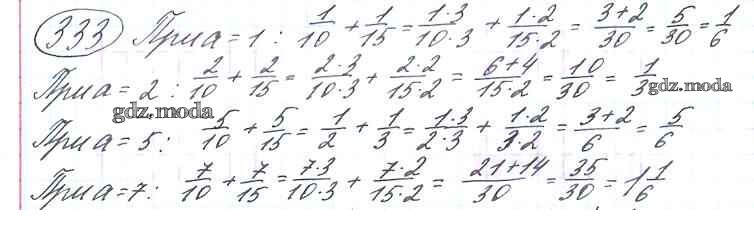 333 При a = 1 : 1/10 + 1/15 = 1·3/10·3 + 1·2/15·2 = 3+2/30 = 5/30 = 1/6
При a = 2 : 2/10 + 2/15 = 2·3/10·3 + 2·2/15·2 = 6+4/15·2 = 10/30 = 1/3 gdz.moda
gdz.moda
При a = 5 : 5/10 + 5/15 = 1/2 + 1/3 = 1·3/2·3 + 1·2/3·2 = 3+2/6 = 5/6
При a = 7 : 7/10 + 7/15 = 7·3/10·3 + 7·2/15·2 = 21+14/30 = 35/30 = 1 1/6